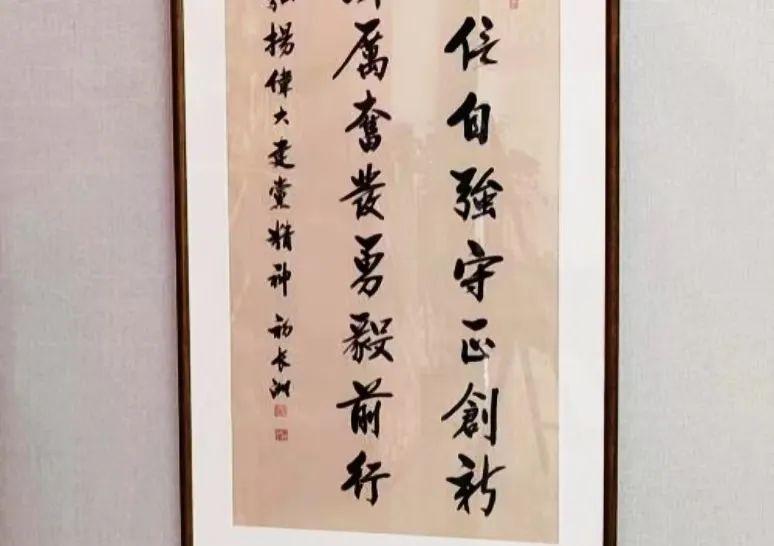 信自強守正創新
厲奮發勇毅前行
揚偉大建黨精神